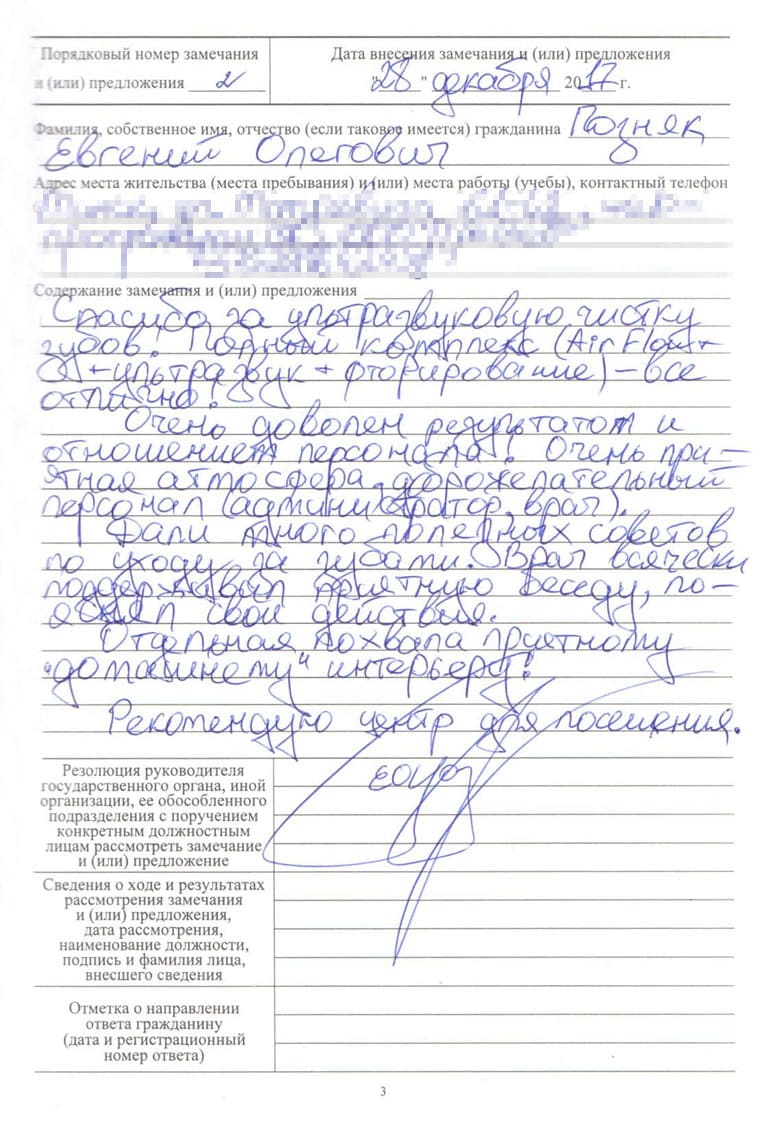 Порядковый номер замечания
и (или) предложения 2
Дата внесения замечания и (или) предложения
"28" декабря 2017 г.
Фамилия, собственное имя, отчество (если таковое имеется) гражданина Позняк
Евгений Олегович
Адрес места жительства (места пребывания) и (или) места работы (учебы), контактный телефон
Содержание замечания и (или) предложения
Спасибо за ультразвуковую чистку
зубов! Полный комплекс (Air Flow+
+ультразвук + фторирование) – все
отлично!
Очень доволен результатом и
отношением персонала! Очень при–
ятная атмосфера, доброжелательный
персонал (администратор, врач).
Дали много полезных советов
по уходу за зубами. Врач всячески
поддерживал приятную беседу, по–
яснял свои действия.
Отдельная похвала приятному
"домашнему" интерьеру!
Рекомендую центр для посещения.
Резолюция руководителя
государственного органа, иной
организации, ее обособленного
подразделения с поручением
конкретным должностным
лицам рассмотреть замечание
и (или) предложение
Сведения о ходе и результатах
рассмотрения замечания
и (или) предложения,
дата рассмотрения,
наименование должности,
подпись и фамилия лица,
внесшего сведения
Отметка о направлении
ответа гражданину
(дата и регистрационный
номер ответа)
3